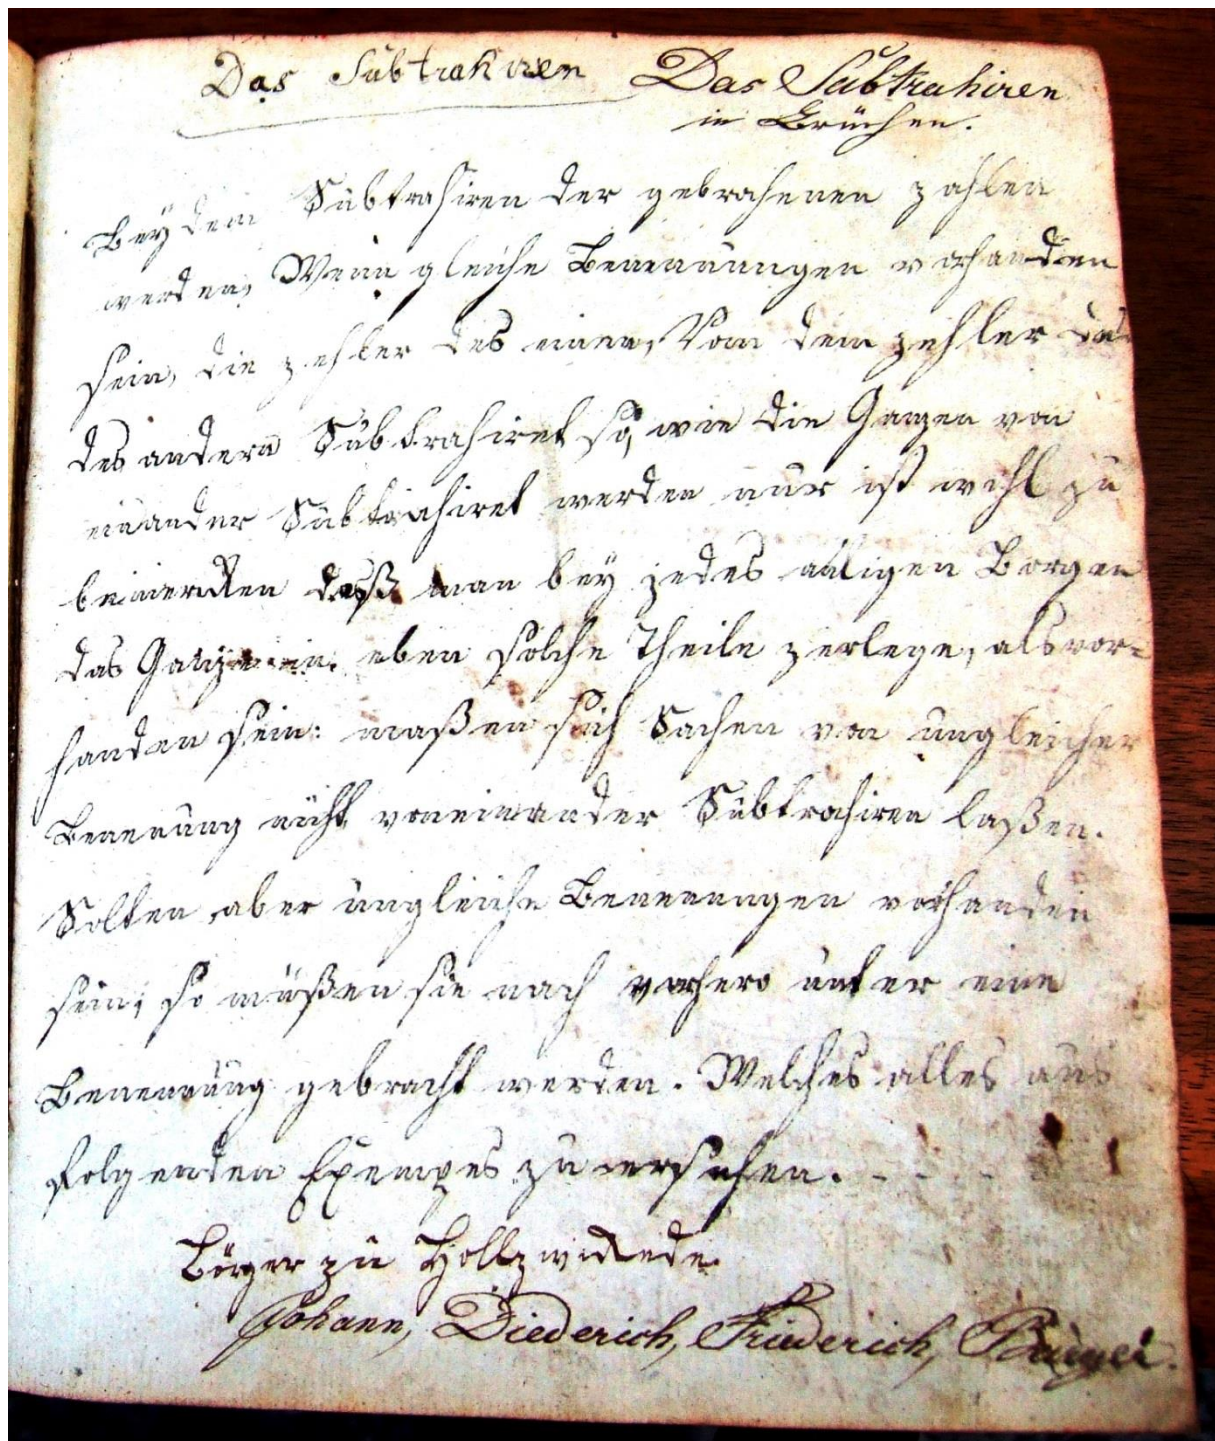 Das Subtrahiren Das Subtrahiren
in Brüchen.
Bey dem Subtrahiren der gebrahenen zahlen
werden, Wenn gleiche Benennungen vorhanden
sein, die zehler des einen, Von dem zehler
des andern Subtrahiret so, wie die Ganzen von
einander Subtrahiret werden nur ist wohl zu
bemercken daß man bey jedes Borgen
das Ganze in eben solche Theile zerlege, als vor=
handen sein: maßen sich Sachen von ungleicher
Benennung nicht voneinander Subtrahiren laßen.
Solten aber ungleiche Benennungen vorhanden
sein; so müßen sie nach vorhero unter eine
Benennung gebracht werden. Welches alles aus
folgenden zu ersehen. - - - -
zu Holtzwickede.
Johann, Diederich, Friederich,